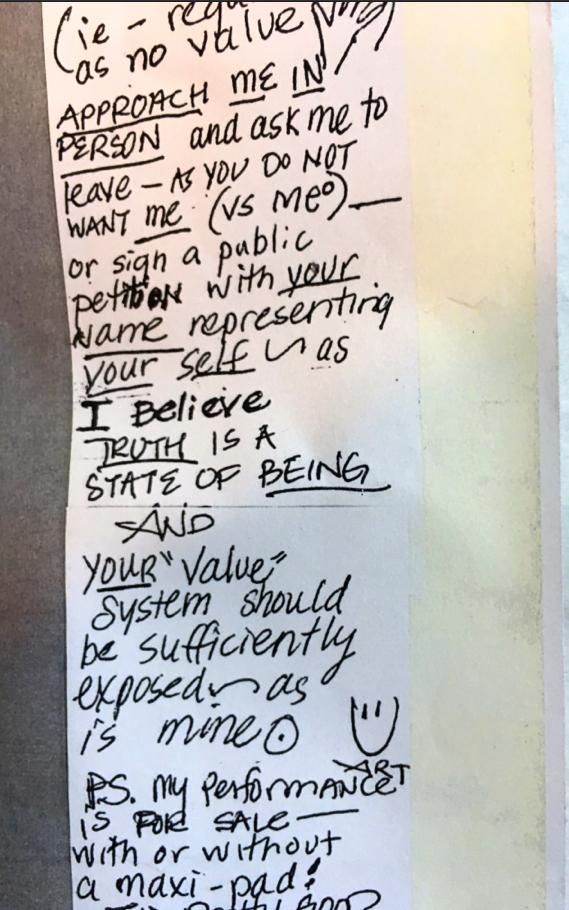 (ie –
as no value
APPROACH ME IN
PERSON and ask me to
leave – AS YOU DO NOT
WANT me (vs me°) —
or sign a public
petition with your
Name representing
your self ~ as
I Believe
TRUTH IS A
STATE OF BEING
AND
YOUR "Value"
System should
be sufficiently
exposed ~ as
is mine
ART
P.S. my Performance
is FOR SALE —
with or without
a maxi-pad!